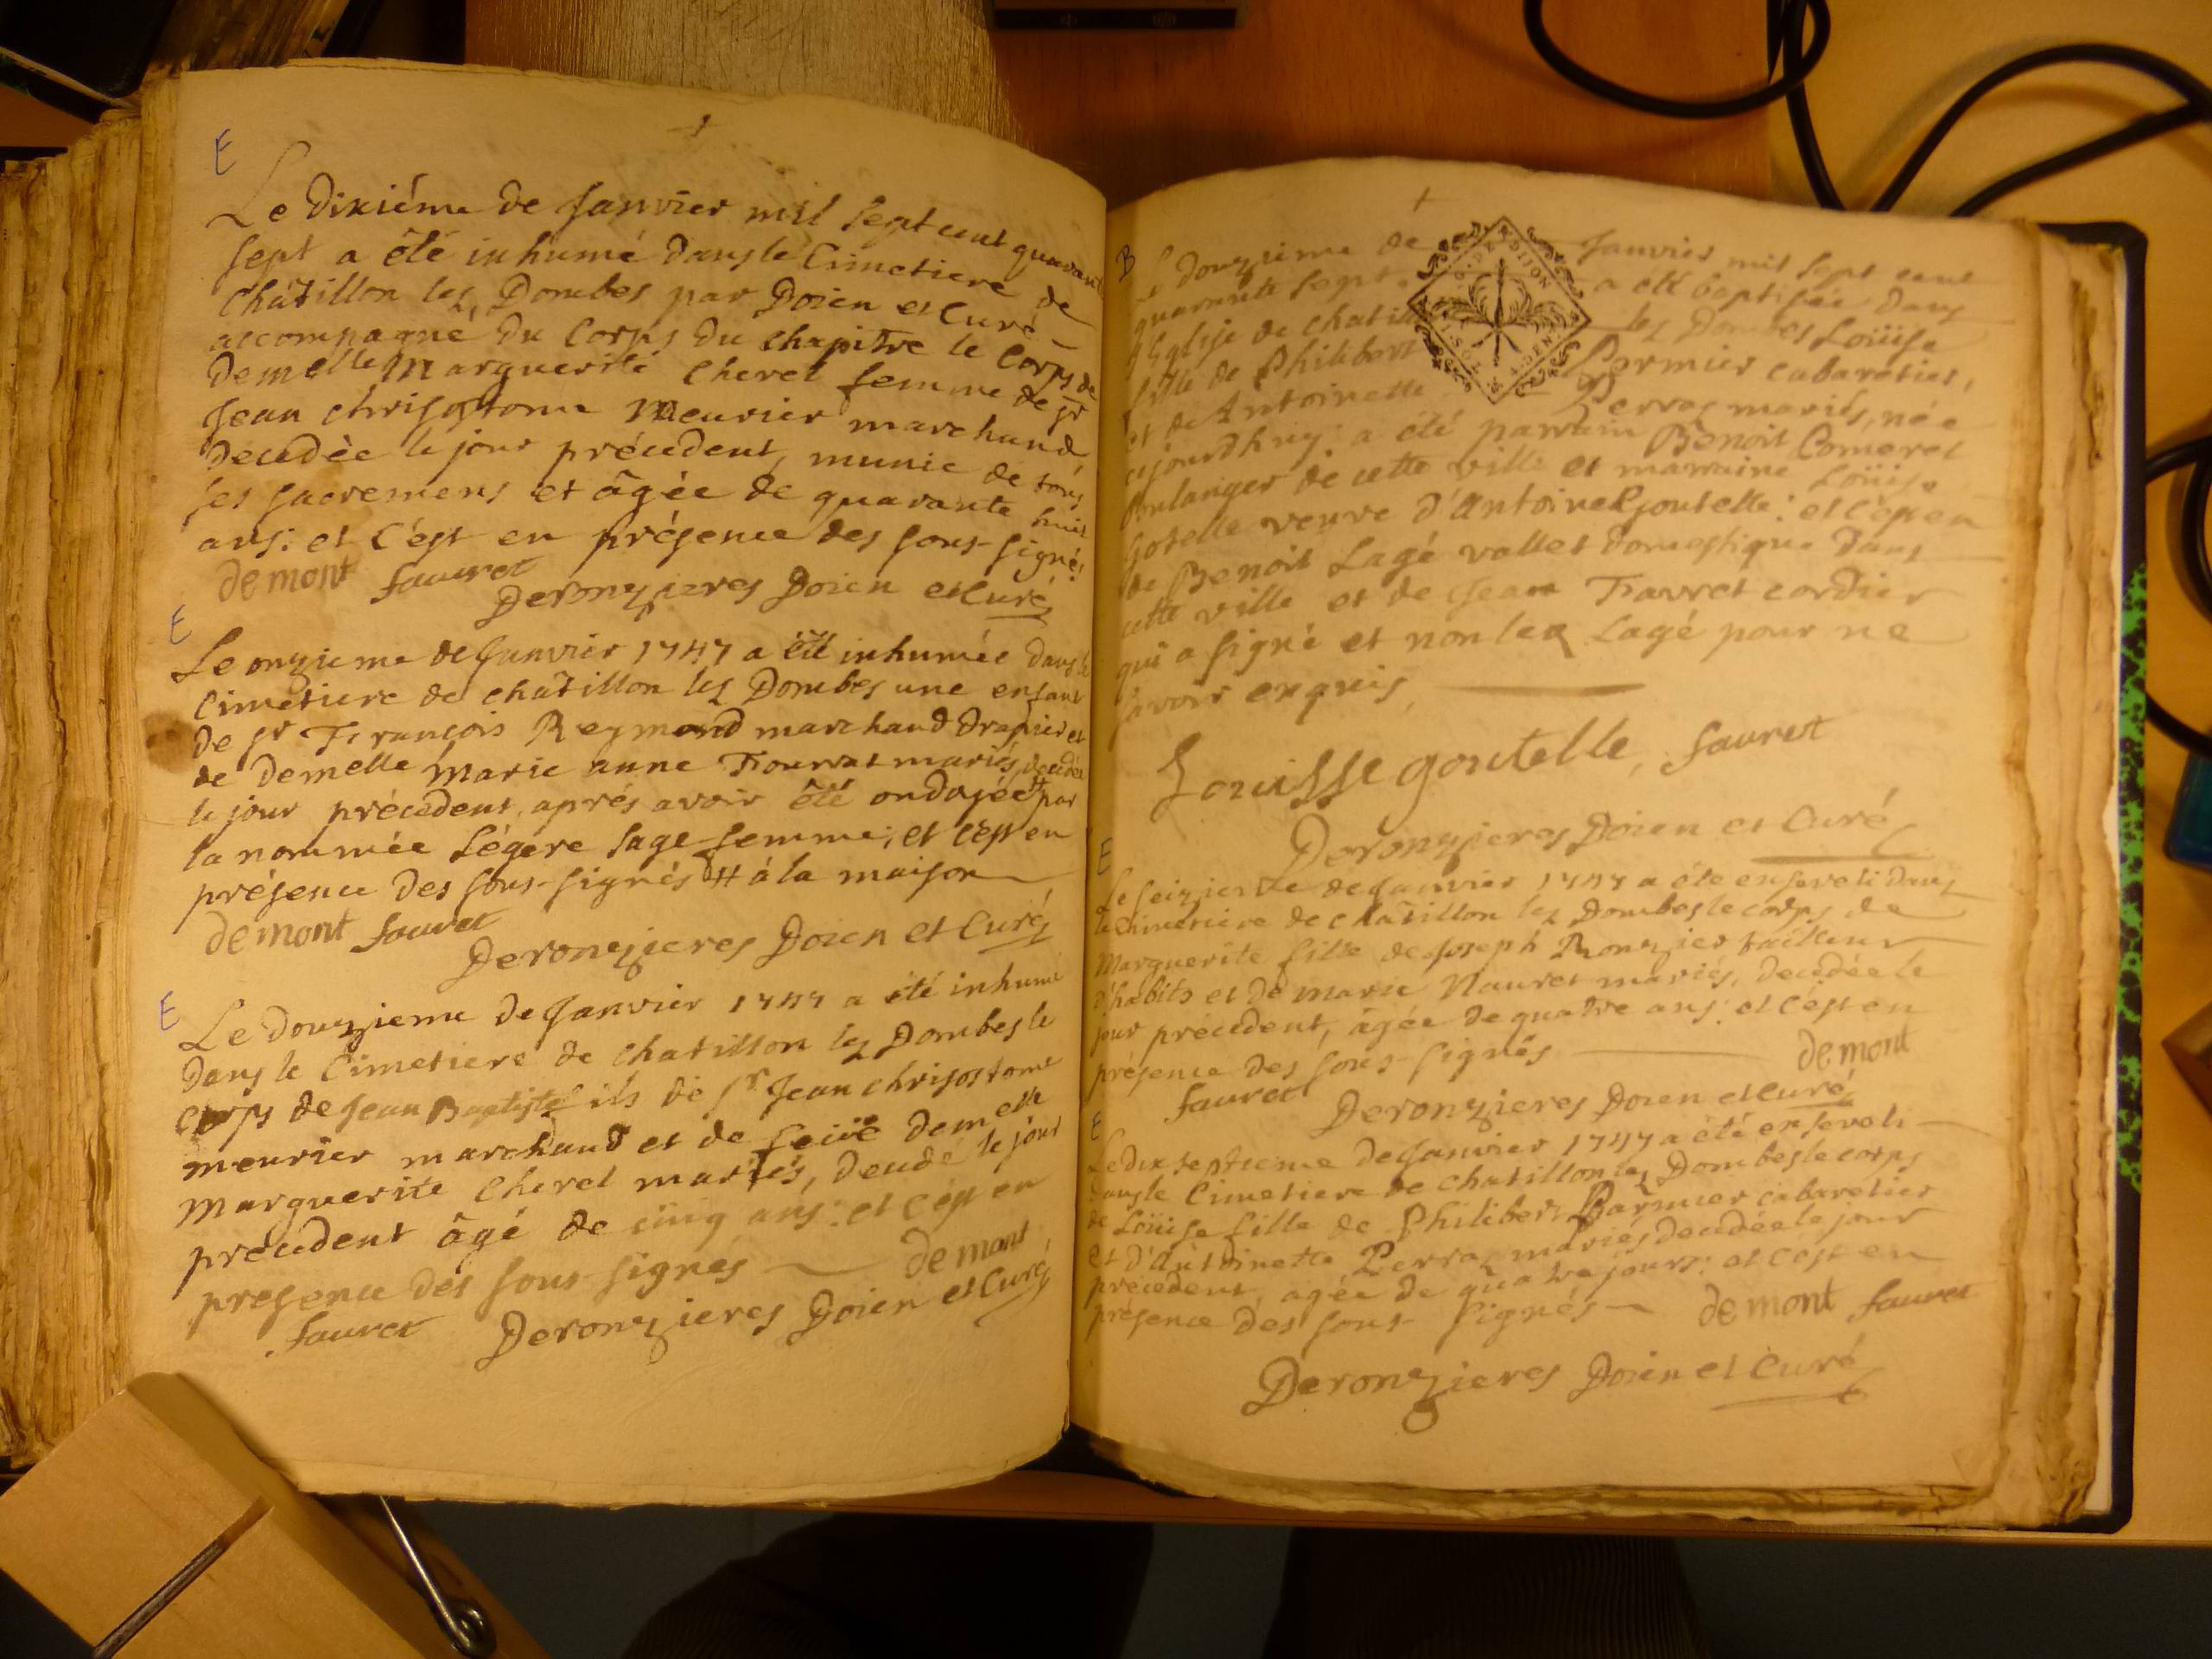 E
Le Dixiéme de Janvier mil sept cent quarant
sept a êté inhumé dans le Cimetiere de
Châtillon les Dombes par Doien et Curé
accompagné du Corps du chapitre le Corps de
Demelle Marguerite Cheret femme de sr
Jean chrisostome Meurier marchand
decedèe le jour précedent, munie de tous
ses sacremens et âgée de quarante huit
ans: et c'ést en présence des sous-signés
demont fauret
Deronzieres Doien et Curé
E
Le onzieme de Janvier 1747 a êté inhumée dans le
Cimetiere de châtillon les Dombes une enfant
de sr François Reymond marchand drapier et
de Demelle Marie anne Tourrat mariés, decedée
le jour précedent, aprés avoir êté ondoyée # par
la nommée Légere sage-femme; et c'ést en
présence des sous-signés # á la maison
demont fauret
Deronzieres Doien et Curé
E
Le Douzieme de Janvier 1747 a êté inhumé
dans le Cimetiere de chatillon les Dombes le
Corps de Jean Baptiste fils de sr Jean chrisostome
meurier marchand et de feüe Demelle
Marguerite Cheret mariés, decedé le jour
précedent âgé de cinq ans: et c'ést en
presence des sous-signés demont
fauret Deronzieres Doien et Curé
B
Le douzieme de Janvier mil sept cent
quarante sept a été baptisée dans
l'Eglise de chatill les Dombes Loüise
fille de Philibert Permier cabaretier,
et de Antoinette Perras mariés, née
cejourdhuy: a été parrain Benoit Comeret
Boulanger de cette ville et marraine Loüise
Gotelle veuve d'Antoine Goutelle: et c'ést en
de Benoit Lagé vallet domestique dans
cette ville et de Jean Favret cordier
qui a signé et non led Lagé pour ne
savoir enquis
Louisse goutelle, fauret
Deronzieres Doien et Curé
E
Le seizieme de Janvier 1747 a été enseveli dans
le Cimetiere de châtillon les Dombes le corps de
Marguerite fille de Joseph Ronzier tailleur
d'habits et de Marie Nauret mariés, decedée le
jour précedent, âgée de quatre ans: et c'ést en
présence des sous-signés demont
fauret Deronzieres Doien et Curé
E
Le dix septieme de Janvier 1747 a été enseveli
dans le Cimetiere de chatillon les Dombes le corps
de Loüise fille de Philibert Parmier cabaretier
et d'Antoinette Perras mariés decedée le jour
précedent, agée de quatre jours: et c'ést en
présence des sous-signés demont fauret
Deronzieres Doien et Curé